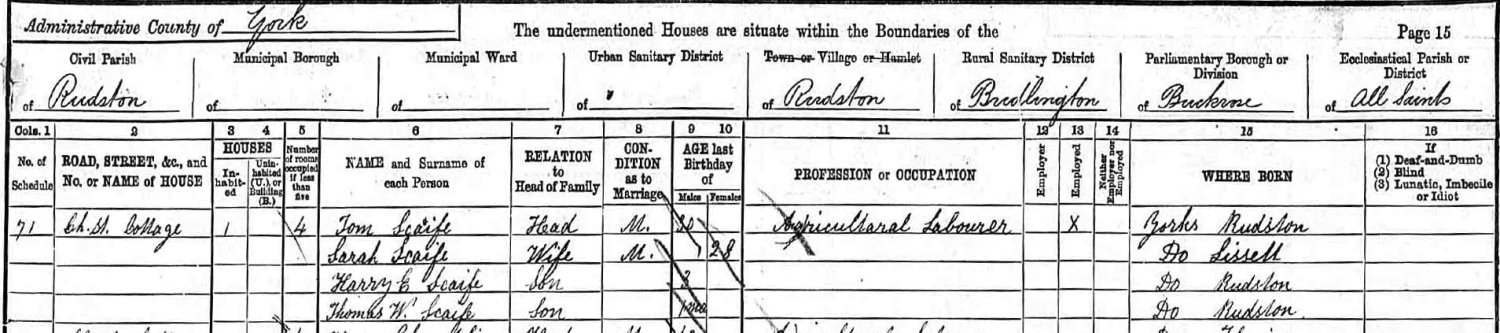 Administrative County of York
The undermentioned Houses are situate within the Boundaries of the
Page 15
Civil Parish of Rudston
Municipal Borough of
Municipal Ward of
Urban Sanitary District of
Town or Village or Hamlet of Rudston
Rural Sanitary District of Bridlington
Parliamentary Borough or Division of Buckrose
Ecclesiastical Parish or District of All Saints
Cols. 1 2 3 4 5 6 7 8 9 10 11 12 13 14 15 16
No. of Schedule
ROAD, STREET, &c., and No. or NAME of HOUSE
HOUSES
In-habit-ed
Unin-habited (U.), or Building (B.)
Number of rooms occupied if less than five
NAME and Surname of each Person
RELATION to Head of Family
CON-DITION as to Marriage
AGE last Birthday of
Males Females
PROFESSION or OCCUPATION
Employer
Employed
Neither Employer nor Employed
WHERE BORN
If
(1) Deaf-and-Dumb
(2) Blind
(3) Lunatic, Imbecile or Idiot
71 Ch. St. Cottage 1 4 Tom Scaife Head M. 30 Agricultural Labourer X Yorks Rudston
Sarah Scaife Wife M. 28 Do Lissett
Harry E Scaife Son 3 Do Rudston
Thomas W. Scaife Son Do Rudston